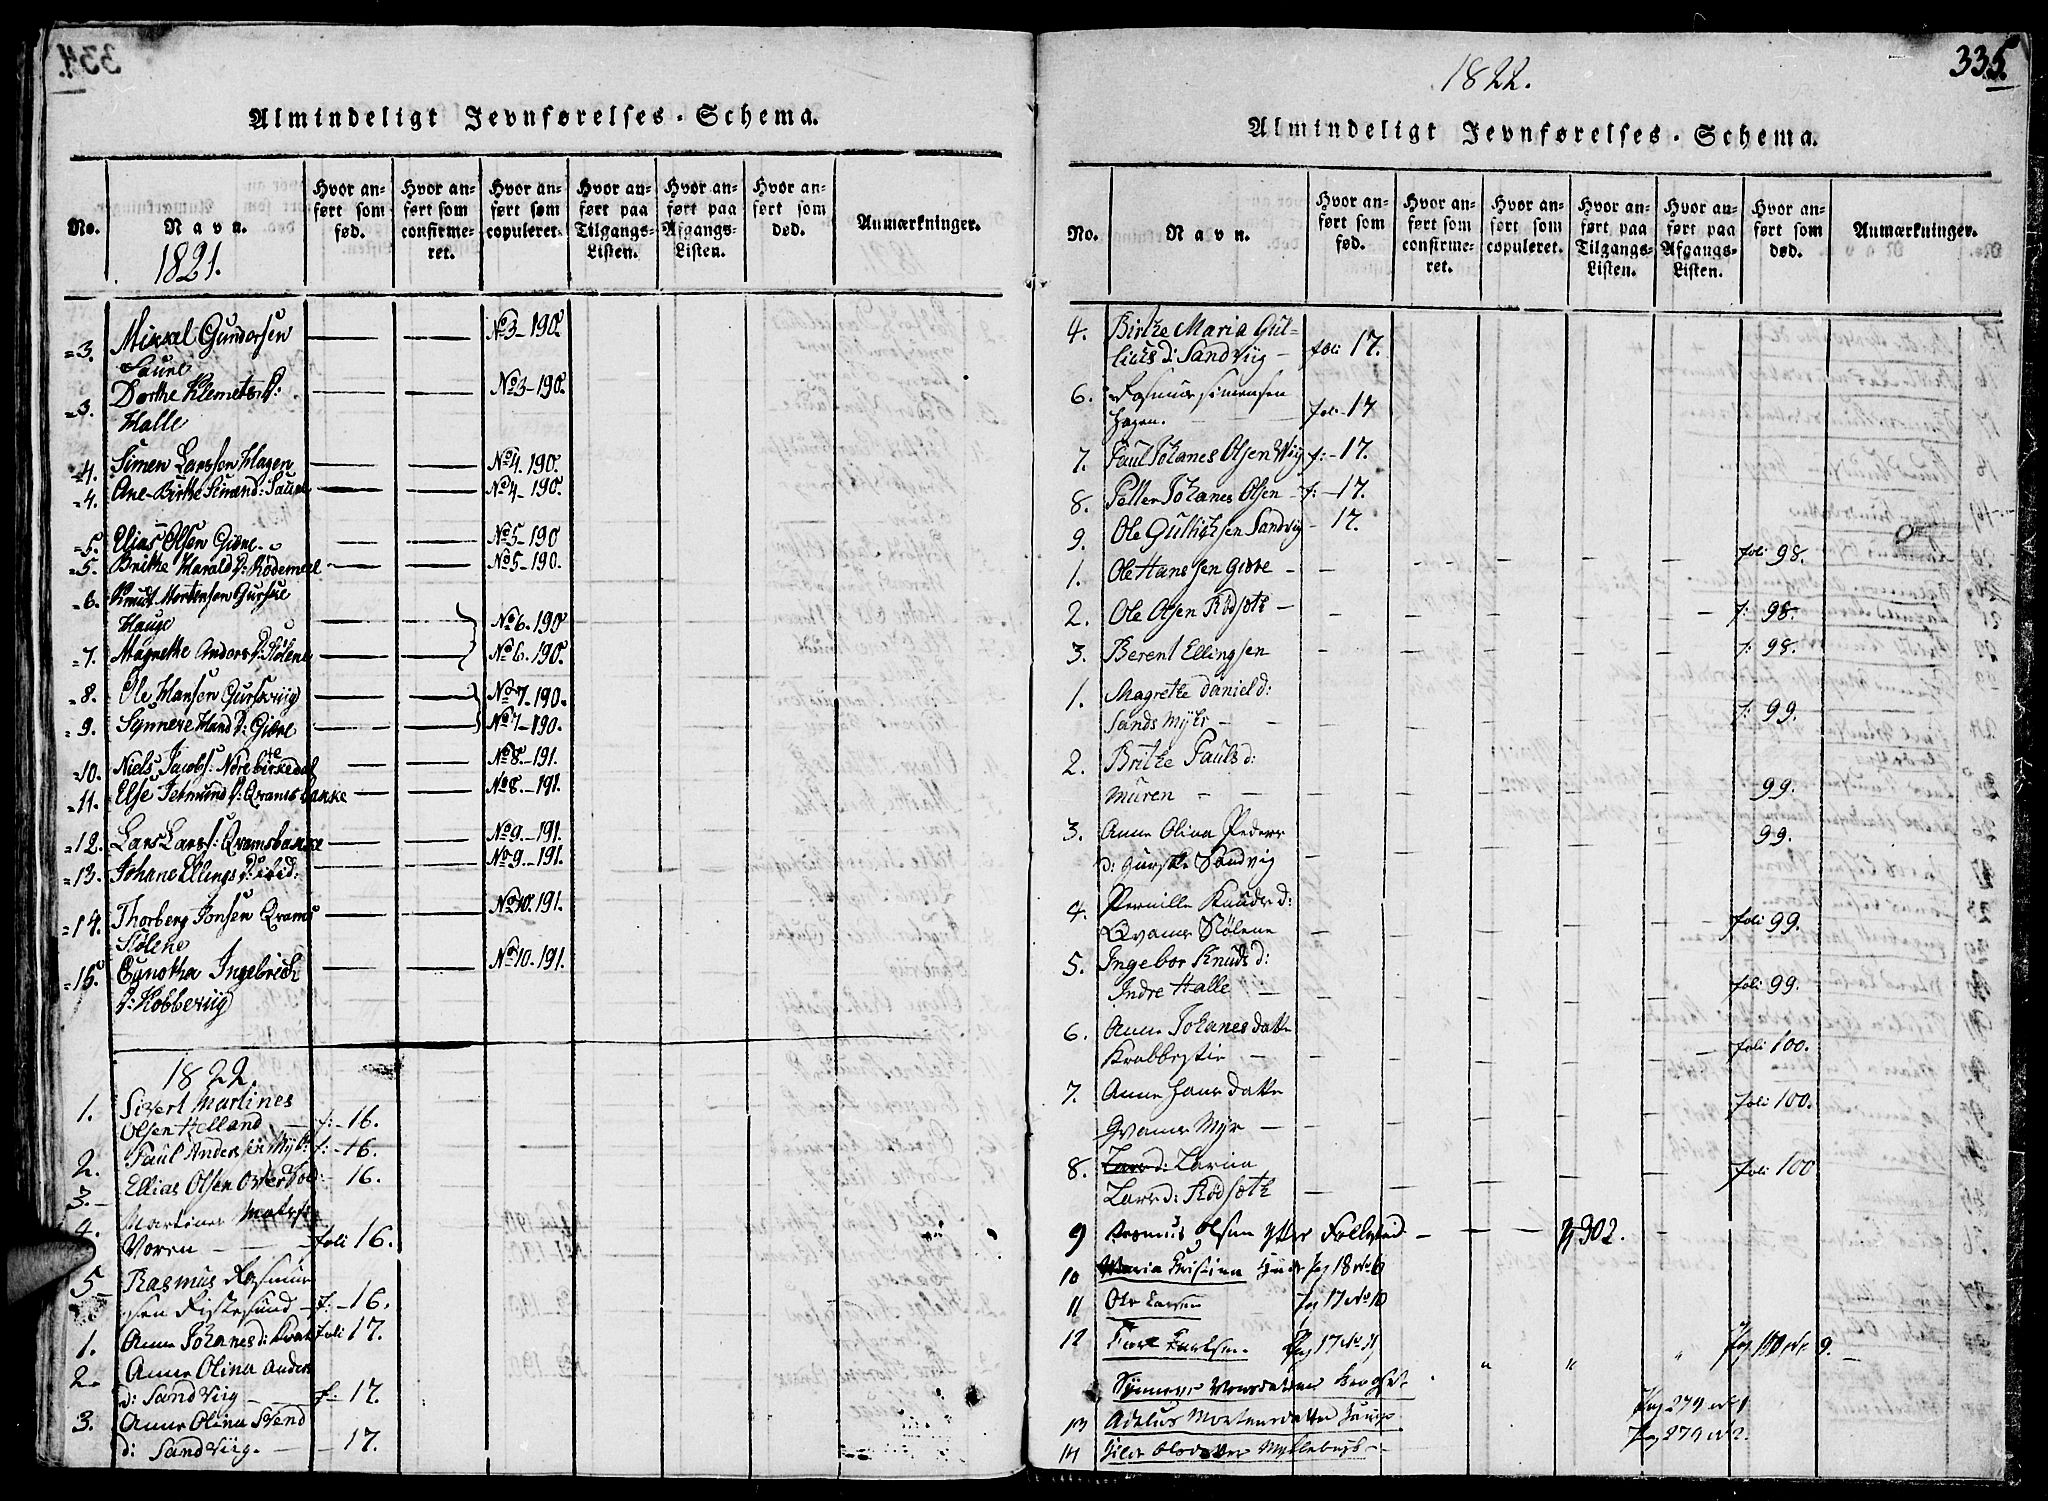 334.
Almindeligt Jevnførelses-Schema.
No.
Navn.
1821.
Hvor anført som fød.
Hvor anført som confirmeret.
Hvor anført som copuleret.
Hvor anført paa Tilgangs-Listen.
Hvor anført paa Afgangs-Listen.
Hvor anført som død.
Anmærkninger.
3. Mikkel Gunnorsen — — No 3-190
3. Dorthe Klemets d: — — No 3-190
Halle
4. Simen Larssen Hagen — — No 4.190.
4. Ane-Birthe — — No 4-190.
5. Elias Olsen Giøre — — No 5-190
5. Brithe Harald d: Rødemeel — No 5-190.
6. Knud Mortensen Gurske
Hauge — — No 6.190
7. Magrethe Anders d: Stølene — No 6.190.
8. Ole Hansen Gurskviig — — No 7.190.
9. Synneve Hans d: Giøre — — No 7-190.
10. Niels Jacobs: Nørebirkedal — — No 8-191.
11. Else Jetmund d: Qvamsbakke — — No 8.-191.
12. Lars Lars: Qvamsbakke — — No 9.-191.
13. Johane Ellings d: ibid: — — No 9.-191.
14. Thorberg Jonsen Qvams — — No 10.191.
Stølene
15. Ingebrich — — No 10.191.
d: Kobberviig
1822.
1. Sivert Martines
Olsen Helland — f: - 16.
2. Paul Andersen Myk: f: - 16.
3. Ellias Olsen 16.
4. Martinus
Voren — — foli 16.
5 Rasmus Rasmus
sen Fistesund — f: - 16.
1. Anne Johanes d: foli 17.
2. Anne Olina Anders
d: Sandviig — f: 17.
3. Anne Olina Svend
d: Sandviig. — - 17.
335.
1822.
Almindeligt Jevnførelses-Schema.
No.
Navn.
Hvor anført som fød.
Hvor anført som confirmeret.
Hvor anført som copuleret.
Hvor anført paa Tilgangs-Listen.
Hvor anført paa Afgangs-Listen.
Hvor anført som død.
Anmærkninger.
4. Birthe Maria Gul-
licks d: Sandviig — foli 17.
6. Rasmus Simensen
Hagen. foli 17
7. Paul Johanes Olsen Wiig f: - 17.
8. Petter Johanes Olsen — f: - 17.
9. Ole Gullichsen Sandvig - 17.
1. Ole Hanssen Giøre — foli 98.
2. Ole Olsen Rødsæth — f: 98.
3. Berent Ellingsen f: 98.
1. Magrethe Daniel d:
Sands Mykr — f: 99.
2. Brithe Pauls d:
Muren — — 99.
3. Anne Olina Peders 99.
d: Gurske Sandvig
4. Pernille Knuds d:
Qvams Stølene foli 99.
5. Ingebor Knuds d:
Indre Halle — foli 99.
6. Anne Johanes datte
Krabbestie — foli 100.
7. Anne Hans datte foli 100.
Qvams Myr —
8. Lars d: Larina foli 100
Lars d: Rødsæth
9 Rasmus Olsen Ytter — — p 302.
10 Maria Pag 18 No 6
11 Ole Larsen Pag 17 No 10
12 Pag 17 No 11 Pag 100 No 9.
Pag 279 No 1
13 Mortensdatter Hauge Pag 279 No 2.
14 Myklebust